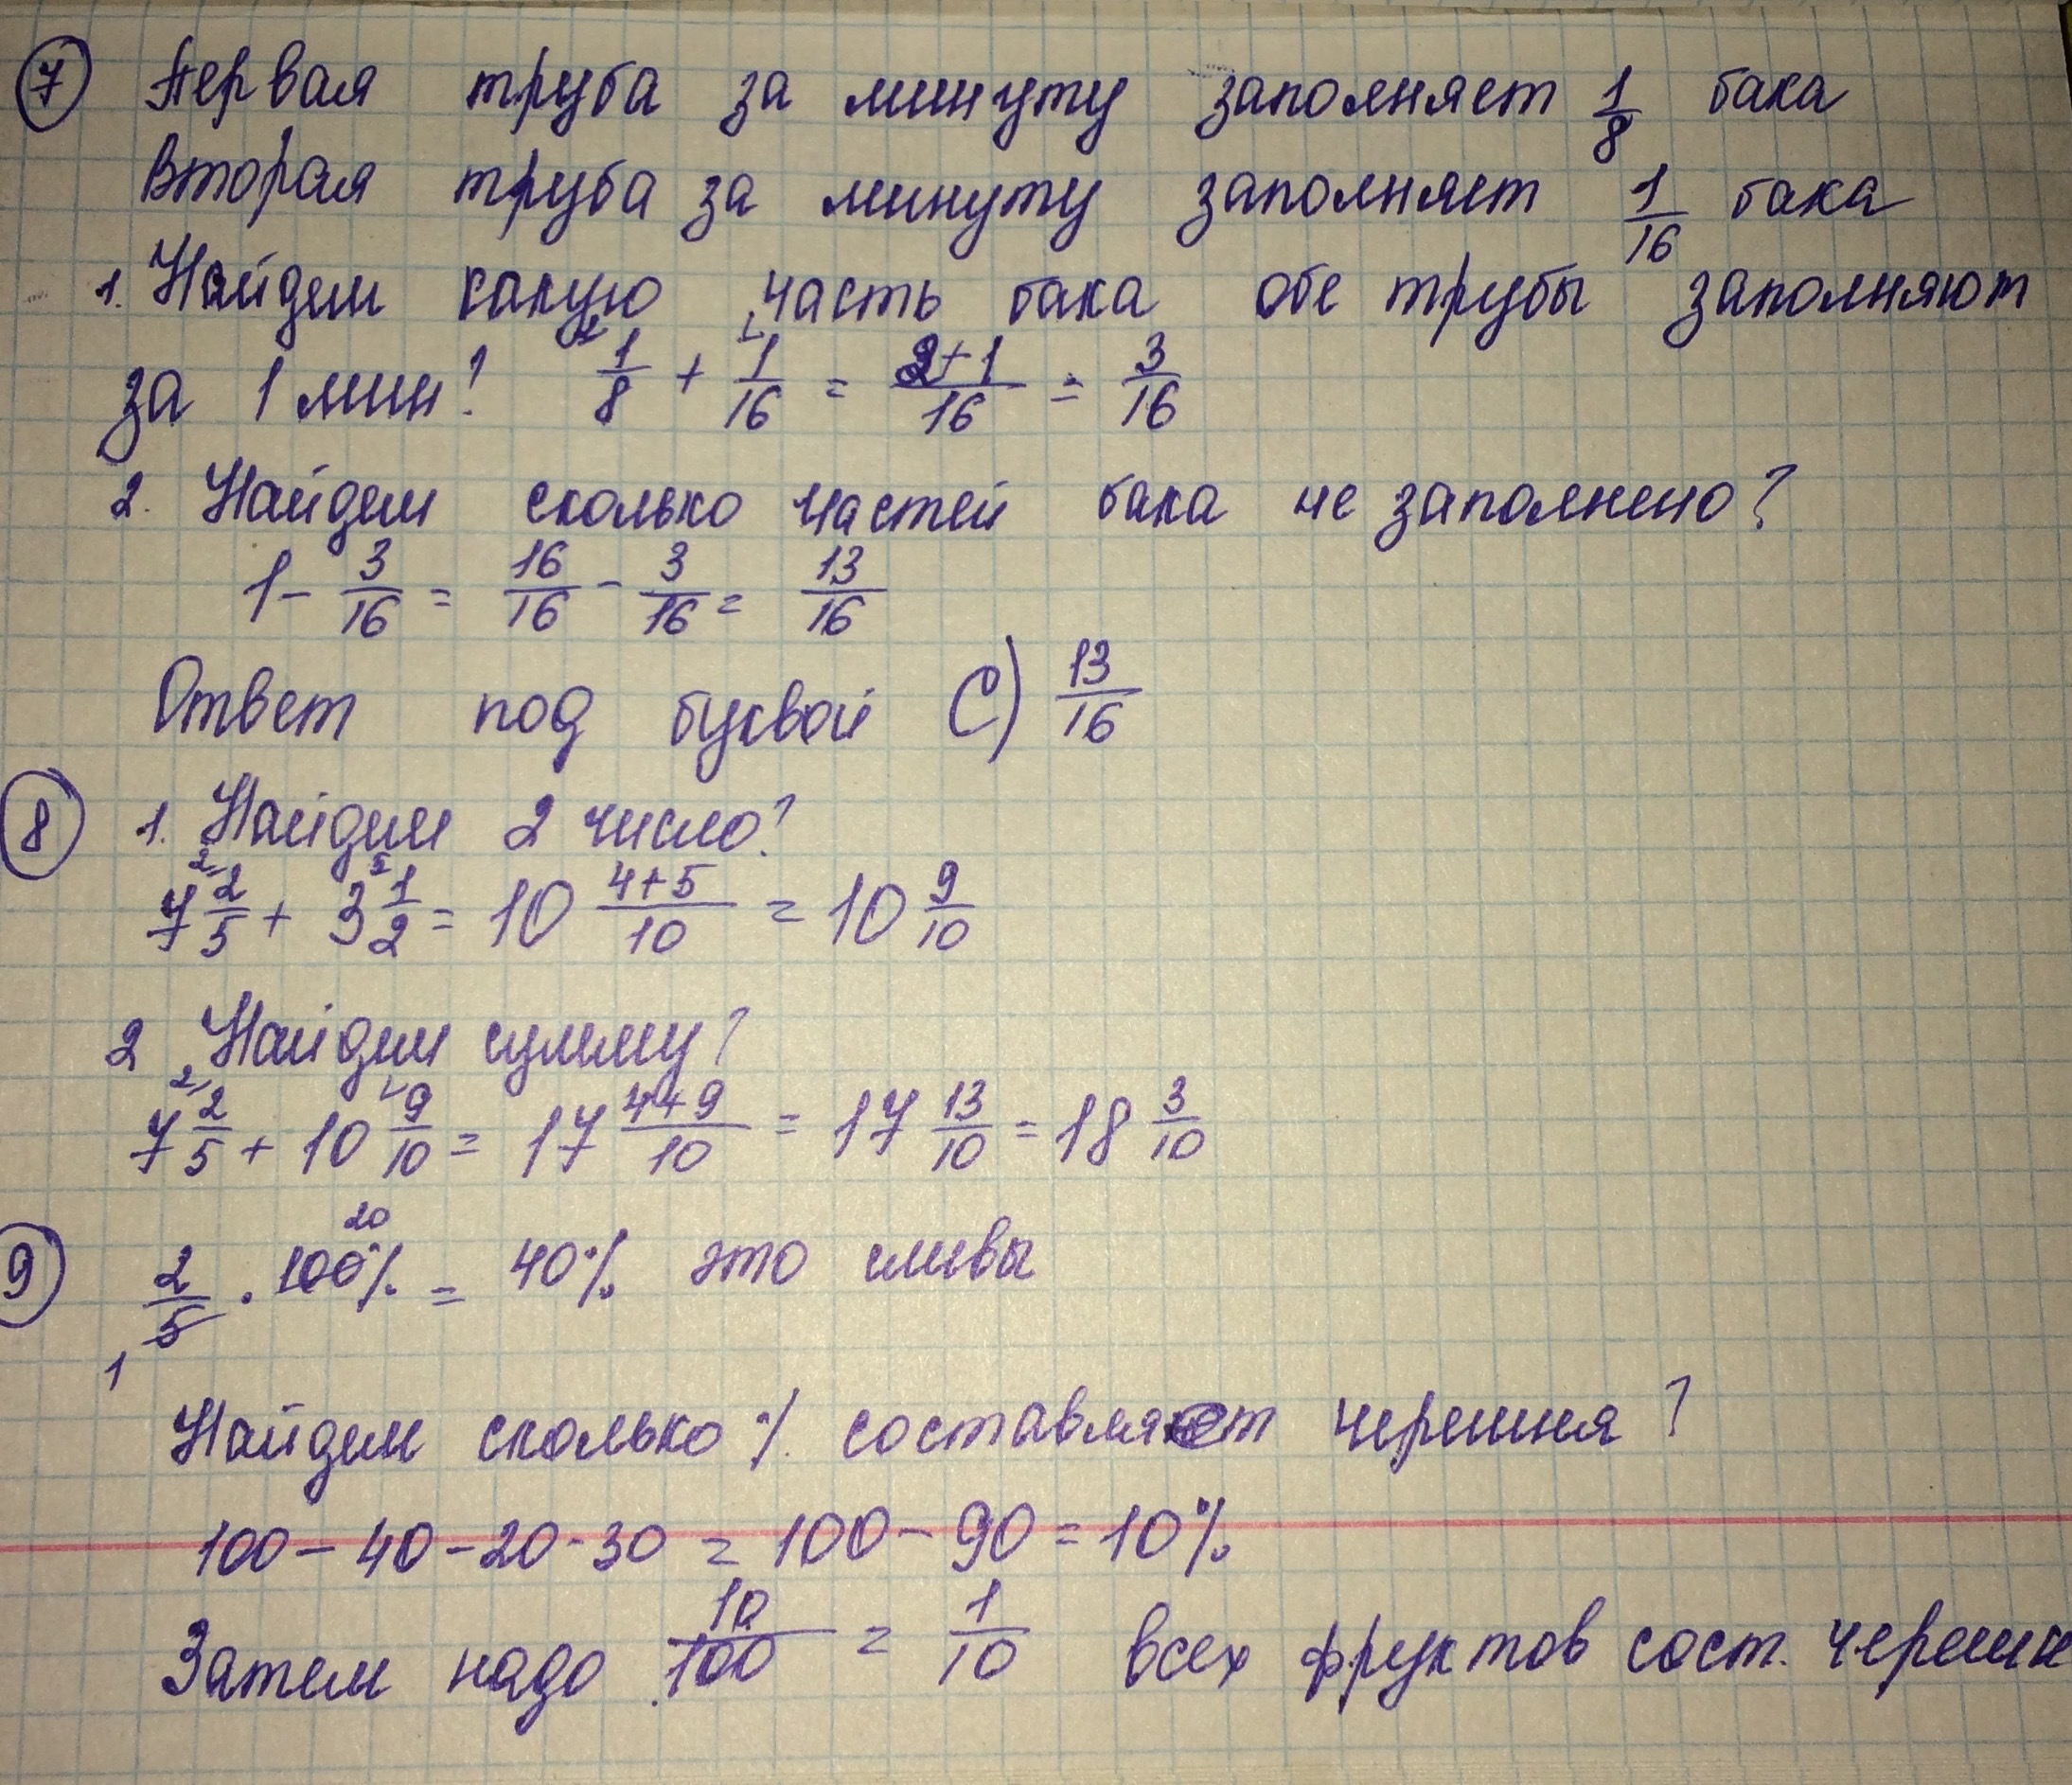 7 Первая труба за минуту заполняет 1/8 бака
Вторая труба за минуту заполняет 1/16 бака
1. Найдем какую часть бака обе трубы заполняют
за 1 мин? 1/8 + 1/16 = 2+1/16 = 3/16
2. Найдем сколько частей бака не заполнено?
1 - 3/16 = 16/16 - 3/16 = 13/16
Ответ под буквой С) 13/16
8 1. Найдем 2 число?
7 2/5 + 3 1/2 = 10 4+5/10 = 10 9/10
2 Найдем сумму?
7 2/5 + 10 9/10 = 17 4+9/10 = 17 13/10 = 18 3/10
9 2/5 · 100% = 40% это сливы
Найдем сколько % составляет черешня?
100 - 40 - 20 - 30 = 100 - 90 = 10%
Затем надо 10/100 = 1/10 всех фруктов сост. черешн